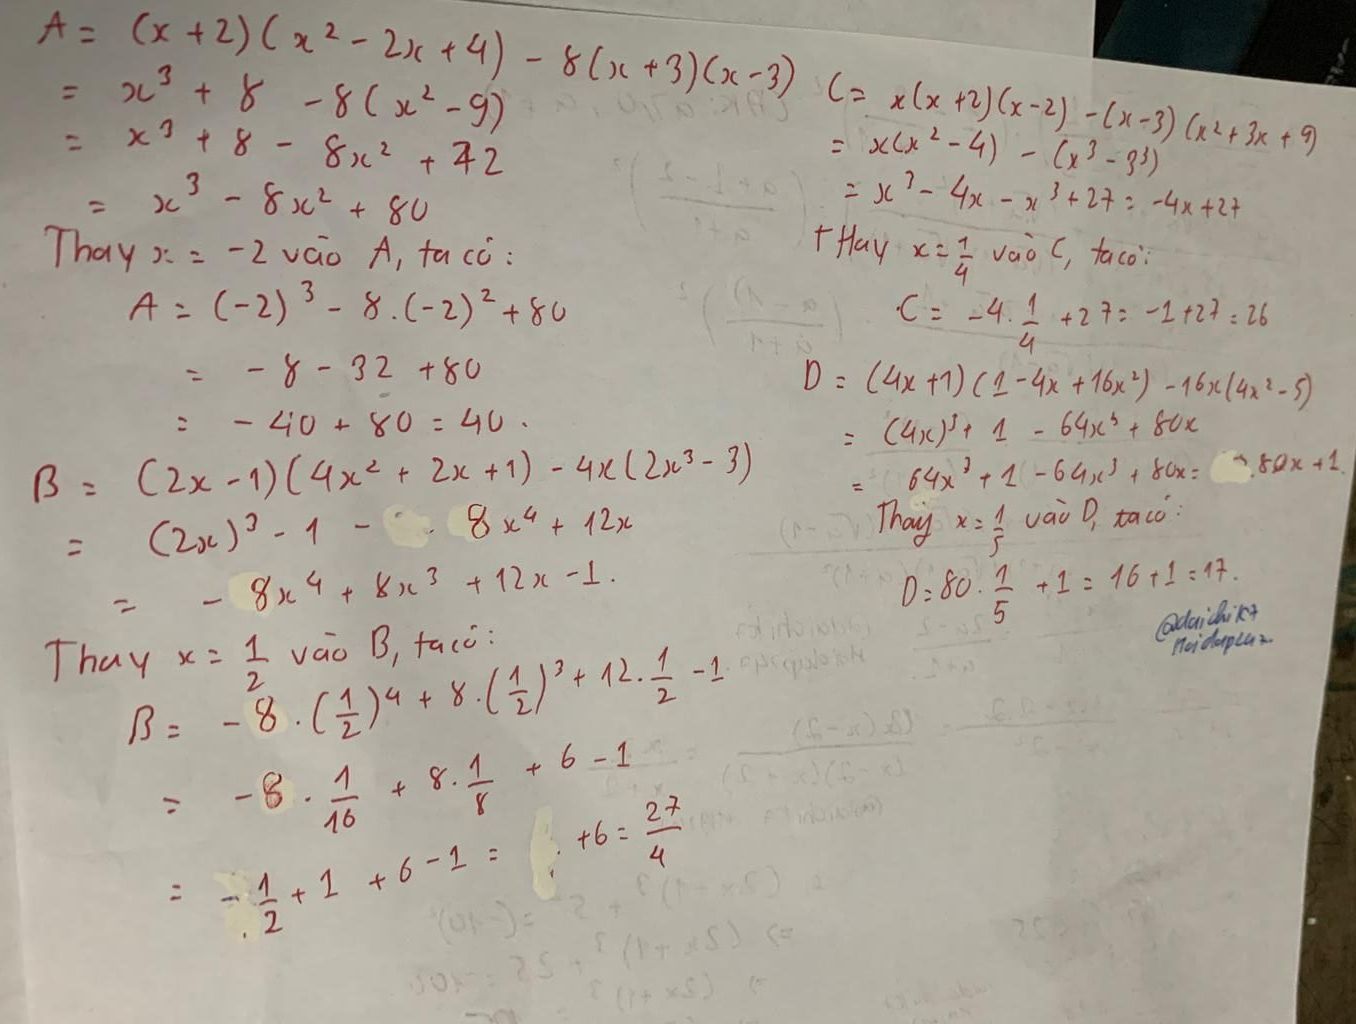 A = (x+2)(x² - 2x + 4) - 8(x+3)(x-3)
= x³ + 8 - 8(x² - 9)
= x³ + 8 - 8x² + 72
= x³ - 8x² + 80
Thay x = -2 vào A, ta có:
A = (-2)³ - 8.(-2)² + 80
= -8 - 32 + 80
= -40 + 80 = 40.
B = (2x-1)(4x² + 2x + 1) - 4x(2x³ - 3)
= (2x)³ - 1 - 8x⁴ + 12x
= -8x⁴ + 8x³ + 12x - 1.
Thay x = 1/2 vào B, ta có:
B = -8.(1/2)⁴ + 8.(1/2)³ + 12.1/2 - 1
= -8.1/16 + 8.1/8 + 6 - 1
= -1/2 + 1 + 6 - 1 = +6 = 27/4
C = x(x+2)(x-2) - (x-3)(x² + 3x + 9)
= x(x² - 4) - (x³ - 3³)
= x³ - 4x - x³ + 27 = -4x + 27
Thay x = 1/4 vào C, ta có:
C = -4.1/4 + 27 = -1 + 27 = 26
D = (4x+1)(1 - 4x + 16x²) - 16x(4x² - 5)
= (4x)³ + 1 - 64x³ + 80x
= 64x³ + 1 - 64x³ + 80x = 80x + 1.
Thay x = 1/5 vào D, ta có:
D = 80.1/5 + 1 = 16 + 1 = 17.